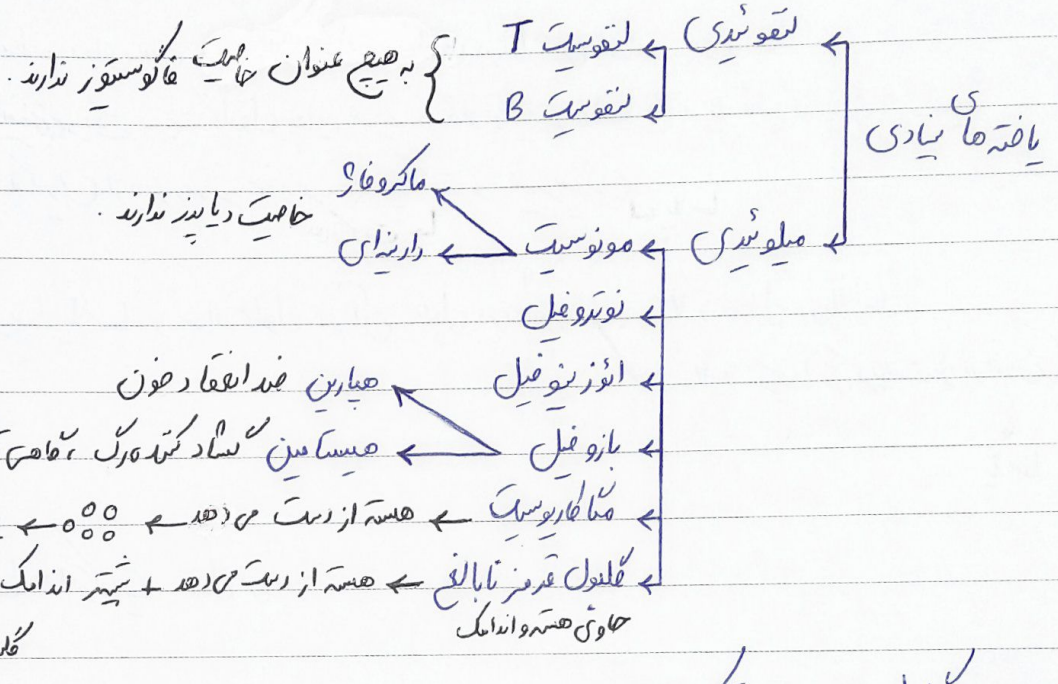 لنفوئیدی ← لنفوسیت T
لنفوسیت B
} به هیچ عنوان خاصیت فاگوسیتوز ندارند.
یاخته های بنیادی
میلوئیدی ← مونوسیت
ماکروفاژ
دارینه‌ای
خاصیت دیاپدز ندارند.
نوتروفیل
ائوزینوفیل
بازوفیل
هپارین ضد انعقاد خون
هیستامین گشاد کننده رگ ،
مگاکاریوسیت ← هسته از دست می دهد ←
گلبول قرمز نابالغ ← هسته از دست می دهد + بیشتر اندامک
حاوی هسته و اندامک